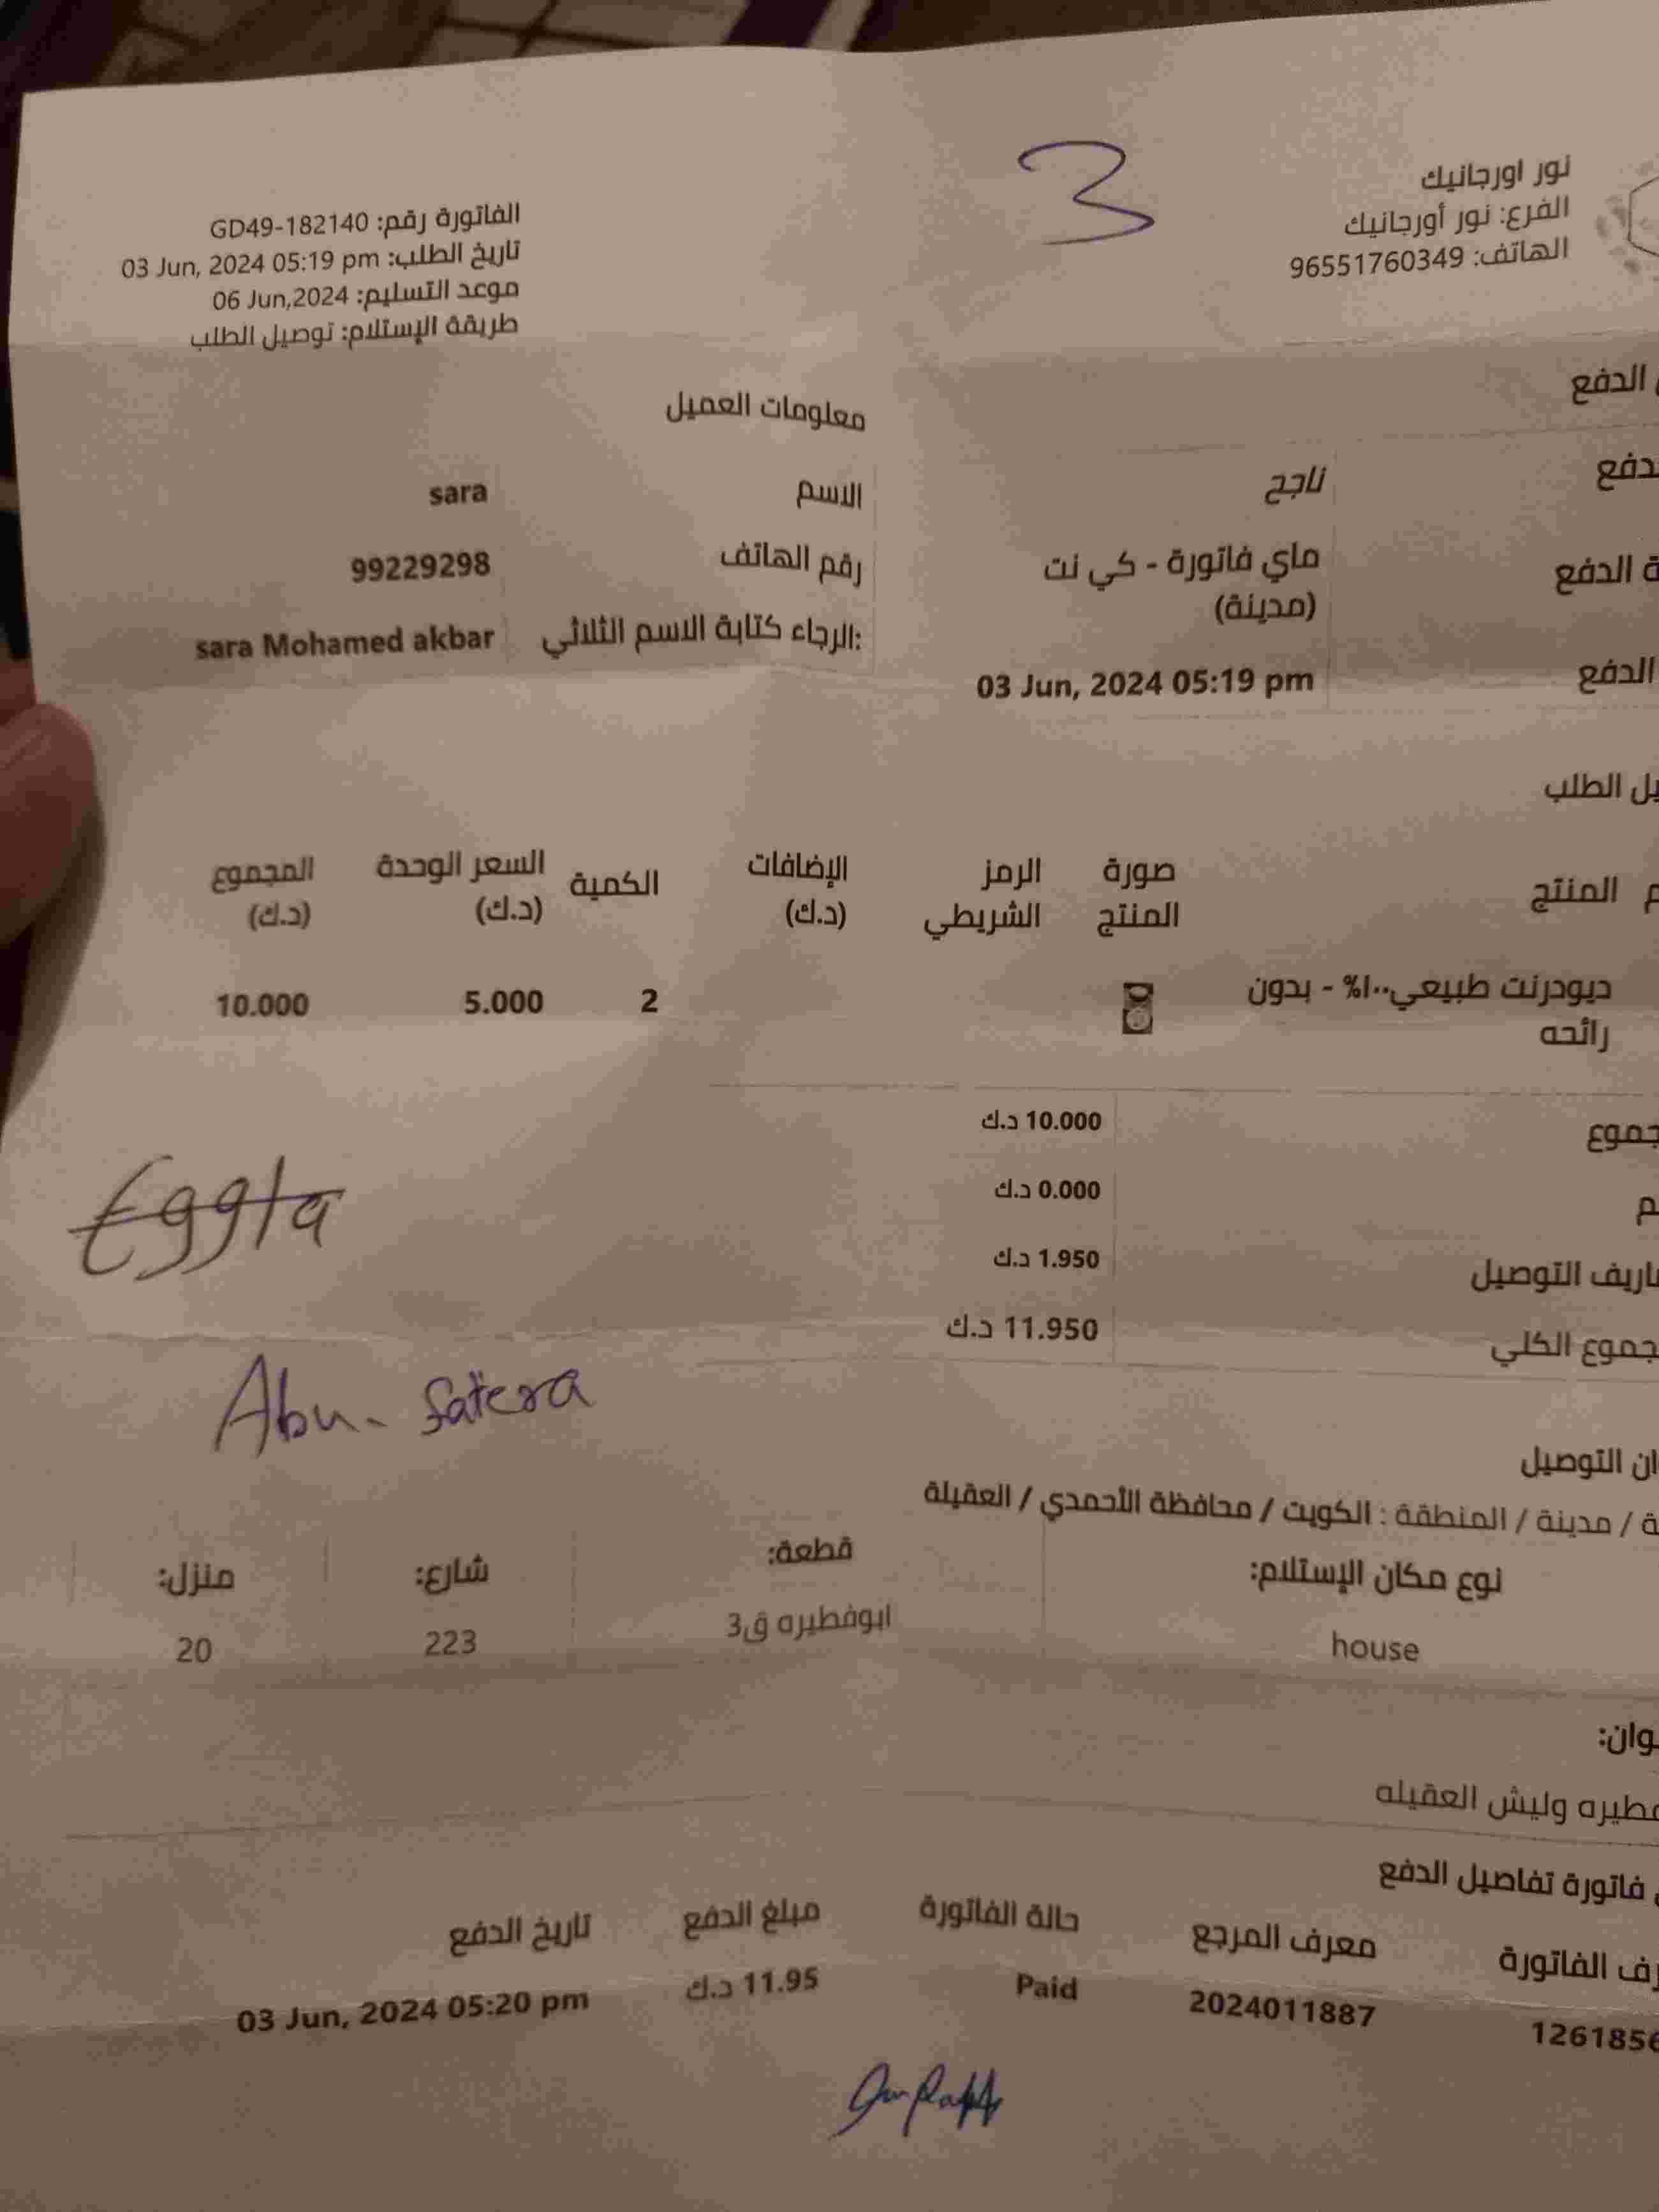 نور اورجانيك
الفرع: نور أورجانيك
الهاتف: 96551760349
3
الفاتورة رقم: GD49-182140
تاريخ الطلب: 03 Jun, 2024 05:19 pm
موعد التسليم: 06 Jun,2024
طريقة الإستلام: توصيل الطلب
الدفع
ناجح
الدفع
ماي فاتورة - كي نت
(مدينة)
الدفع
03 Jun, 2024 05:19 pm
معلومات العميل
الاسم sara
رقم الهاتف 99229298
الرجاء كتابة الاسم الثلاثي: sara Mohamed akbar
الطلب
المنتج
صورة المنتج
الرمز الشريطي
الإضافات (د.ك)
الكمية
السعر الوحدة (د.ك)
المجموع (د.ك)
ديودرنت طبيعي١٠٠% - بدون
رائحه
2 5.000 10.000
10.000 د.ك
0.000 د.ك
التوصيل 1.950 د.ك
الكلي 11.950 د.ك
Eggla
Abu- fatera
التوصيل
/ مدينة / المنطقة : الكويت / محافظة الأحمدي / العقيلة
نوع مكان الإستلام: قطعة: شارع: منزل:
house ابوفطيره ق3 223 20
وليش العقيله
فاتورة تفاصيل الدفع
الفاتورة معرف المرجع حالة الفاتورة مبلغ الدفع تاريخ الدفع
2024011887 Paid 11.95 د.ك 03 Jun, 2024 05:20 pm